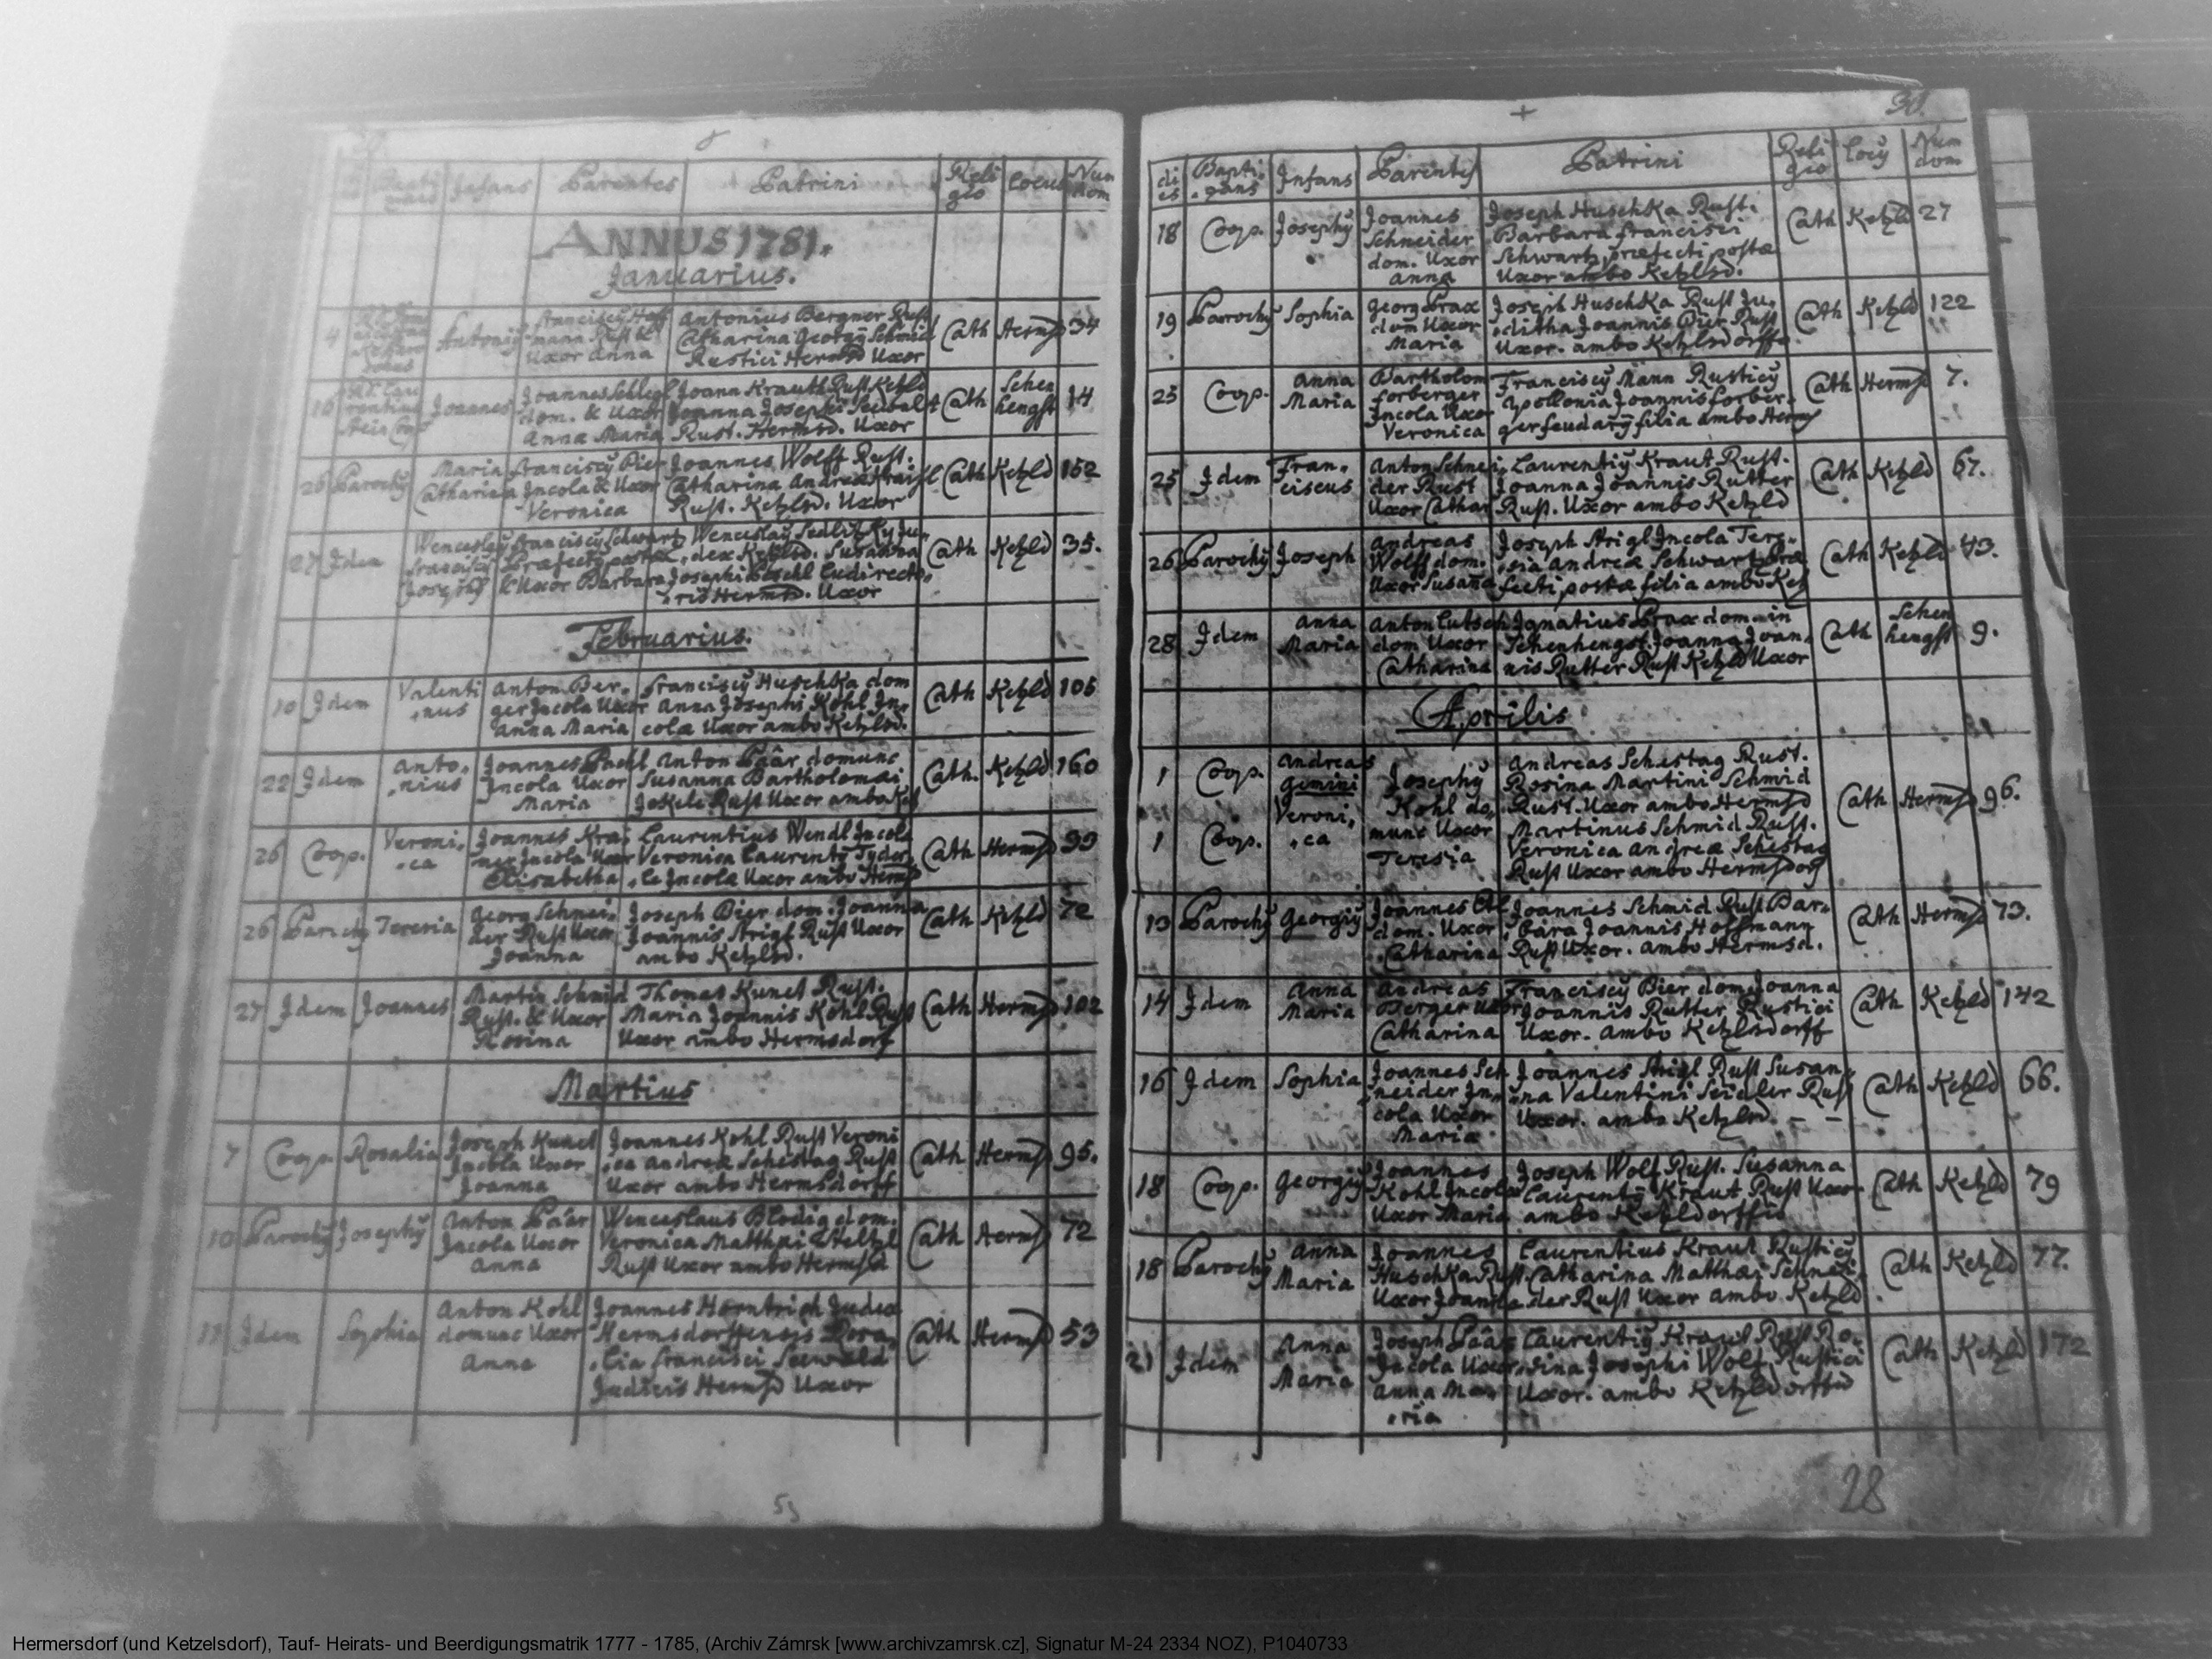 Infans Parentes Patrini Reli gio Locus Num dom
ANNUS 1781.
Januarius.
4 Antoniÿ Franciscÿ Hoff mann Rust & Uxor Anna
Antonius Bergner Rust
Catharina Georgÿ Schmid
Rustici Hermsd Uxor
Cath Hermsd 34
16 Joannes
Joannes Schlegl
dom. & Uxor
Anna Maria
Joann Krauth Rust Ketzld
Joanna Josephi Seiwalt
Rust. Hermsd. Uxor
Cath Schen hengst 14
26 Parochÿ Maria Catharina
Franciscÿ Pier
Incola & Uxor
Veronica
Joannes Wolff Rust.
Catharina Andreæ Kraissl
Rust. Ketzlsd. Uxor
Cath Ketzld 152
27 Idem
Wenceslaÿ
Franciscÿ
Josephÿ
Franciscÿ Schwartz
Præfectÿ postæ
& Uxor Barbara
Wenceslaÿ Sedlitzky Ju-
dex Ketzlsd. Susanna
Josephi Peschl Ludirecto-
ris Hermsd. Uxor
Cath Ketzld 35.
Februarius.
10 Idem Valenti
nus
Anton Ber-
ger Incola Uxor
Anna Maria
Franciscÿ Huschka dom
Anna Josephi Kohl In-
colæ Uxor ambo Ketzlsd.
Cath Ketzld 105
22 Idem Anto-
nius
Joannes
Incola Uxor
Maria
Anton Päär domunc
Susanna Bartholomæi
Jokele Rust Uxor ambo
Cath. Ketzld 160
26 Coop. Veroni-
ca
Joannes
Incola Uxor
Elisabetha
Laurentius Wendl Incola
Veronica Laurentÿ
Incolæ Uxor ambo Hermsd
Cath Hermsd 99
26 Parochÿ Teresia
Georg Schnei-
der Rust Uxor
Joanna
Joseph Bier dom. Joanna
Joannis Strigl Rust Uxor
ambo Ketzlsd.
Cath Ketzld 72
27 Idem Joannes
Martin Schmid
Rust. & Uxor
Rosina
Thomas Kunet Rust.
Maria Joannis Kohl Rust
Uxor ambo Hermsdorf
Cath Hermsd 102
Martius
7 Coop. Rosalia
Joseph Kunet
Incola Uxor
Joanna
Joannes Kohl Rust Veroni
ca Andreæ Schestag Rust
Uxor ambo Hermsdorff
Cath Hermsd 95.
10 Parochÿ Josephÿ
Anton Päär
Incola Uxor
Anna
Wenceslaus Blodig dom.
Veronica Matthæi Steltzl
Rust Uxor ambo Hermsd
Cath Hermsd 72
11 Idem Sophia
Anton Kohl
domunc Uxor
Anna
Joannes Horntrich Judex
Hermsdorffensis Rosa-
lia Francisci Seewald
Judicis Hermsd Uxor
Cath Hermsd 53
53
30.
di es Bapti- zans Infans Parentes Patrini Reli gio Locÿ Num dom
18 Coop. Josephÿ
Joannes
Schneider
dom. Uxor
Anna
Joseph Huschka Rust.
Barbara Francisci
Schwartz, præfecti postæ
Uxor ambo Ketzlsd.
Cath Ketzld 27
19 Parochÿ Sophia
Georg Prax
dom Uxor
Maria
Joseph Huschka Rust Ju-
ditha Joannis Bier Rust
Uxor. ambo Ketzlsdorff
Cath Ketzld 122
25 Coop. Anna
Maria
Bartholom
Forberger
Incola Uxor
Veronica
Franciscÿ Mann Rusticÿ
Apollonia Joannis Forber-
ger feudarÿ filia ambo Herms
Cath Hermsd 7.
25 Idem Fran-
ciscus
Anton Schnei-
der Rust
Uxor Cathar
Laurentiÿ Kraut Rust.
Joanna Joannis Rutter
Rust. Uxor ambo Ketzld
Cath Ketzld 67.
26 Parochÿ Joseph
Andreas
Wolff dom.
Uxor Susana
Joseph Strigl Incola Tere-
sia Andreæ Schwartz præ
fecti postæ filia ambo Ketz
Cath Ketzld 43.
28 Idem Anna
Maria
Anton Lutsch
dom Uxor
Catharina
Ignatius Prax dom. in
Schenhengst Joanna Joan-
nis Rutter Rust Ketzld Uxor
Cath Schen
hengst 9.
Aprilis
1 Coop. Andreas
gemini
1 Coop. Veroni-
ca
Josephÿ
Kohl do-
munc Uxor
Teresia
Andreas Schestag Rust.
Rosina Martini Schmid
Rust. Uxor ambo Hermsd
Martinus Schmid Rust.
Veronica Andreæ Schestag
Rust Uxor ambo Hermsdorf
Cath Hermsd 96.
13 Parochÿ Georgiÿ
Joannes
dom. Uxor
Catharina
Joannes Schmid Rust Bar-
bara Joannis Hoffmann
Rust Uxor. ambo Hermsd.
Cath Hermsd 73.
14 Idem Anna
Maria
Andreas
Berger Uxor
Catharina
Franciscÿ Bier dom. Joanna
Joannis Rutter Rustici
Uxor. ambo Ketzlsdorff
Cath Ketzld 142
16 Idem Sophia
Joannes Sch
neider In-
cola Uxor
Maria
Joannes Strigl Rust Susan-
na Valentini Seidler Rust
Uxor. ambo Ketzlsd. - -
Cath Ketzld 66.
18 Coop. Georgiÿ
Joannes
Kohl Incola
Uxor Maria
Joseph Wolf Rust. Susanna
Laurentÿ Kraut Rust Uxor
ambo Ketzldorff
Cath Ketzld 79
18 Parochÿ Anna
Maria
Joannes
Huschka Rust.
Uxor Joanna
Laurentius Kraut Rusticÿ
Catharina Matthæi Schnei-
der Rust Uxor ambo Ketzld
Cath Ketzld 77.
21 Idem Anna
Maria
Joseph Päär
Incola Uxor
Anna Ma-
ria
Laurentiÿ Kraut Rust Ro-
sina Josephi Wolf Rustici
Uxor. ambo Ketzldorff
Cath Ketzld 172
28
Hermersdorf (und Ketzelsdorf), Tauf- Heirats- und Beerdigungsmatrik 1777 - 1785, (Archiv Zámrsk [www.archivzamrsk.cz], Signatur M-24 2334 NOZ), P1040733